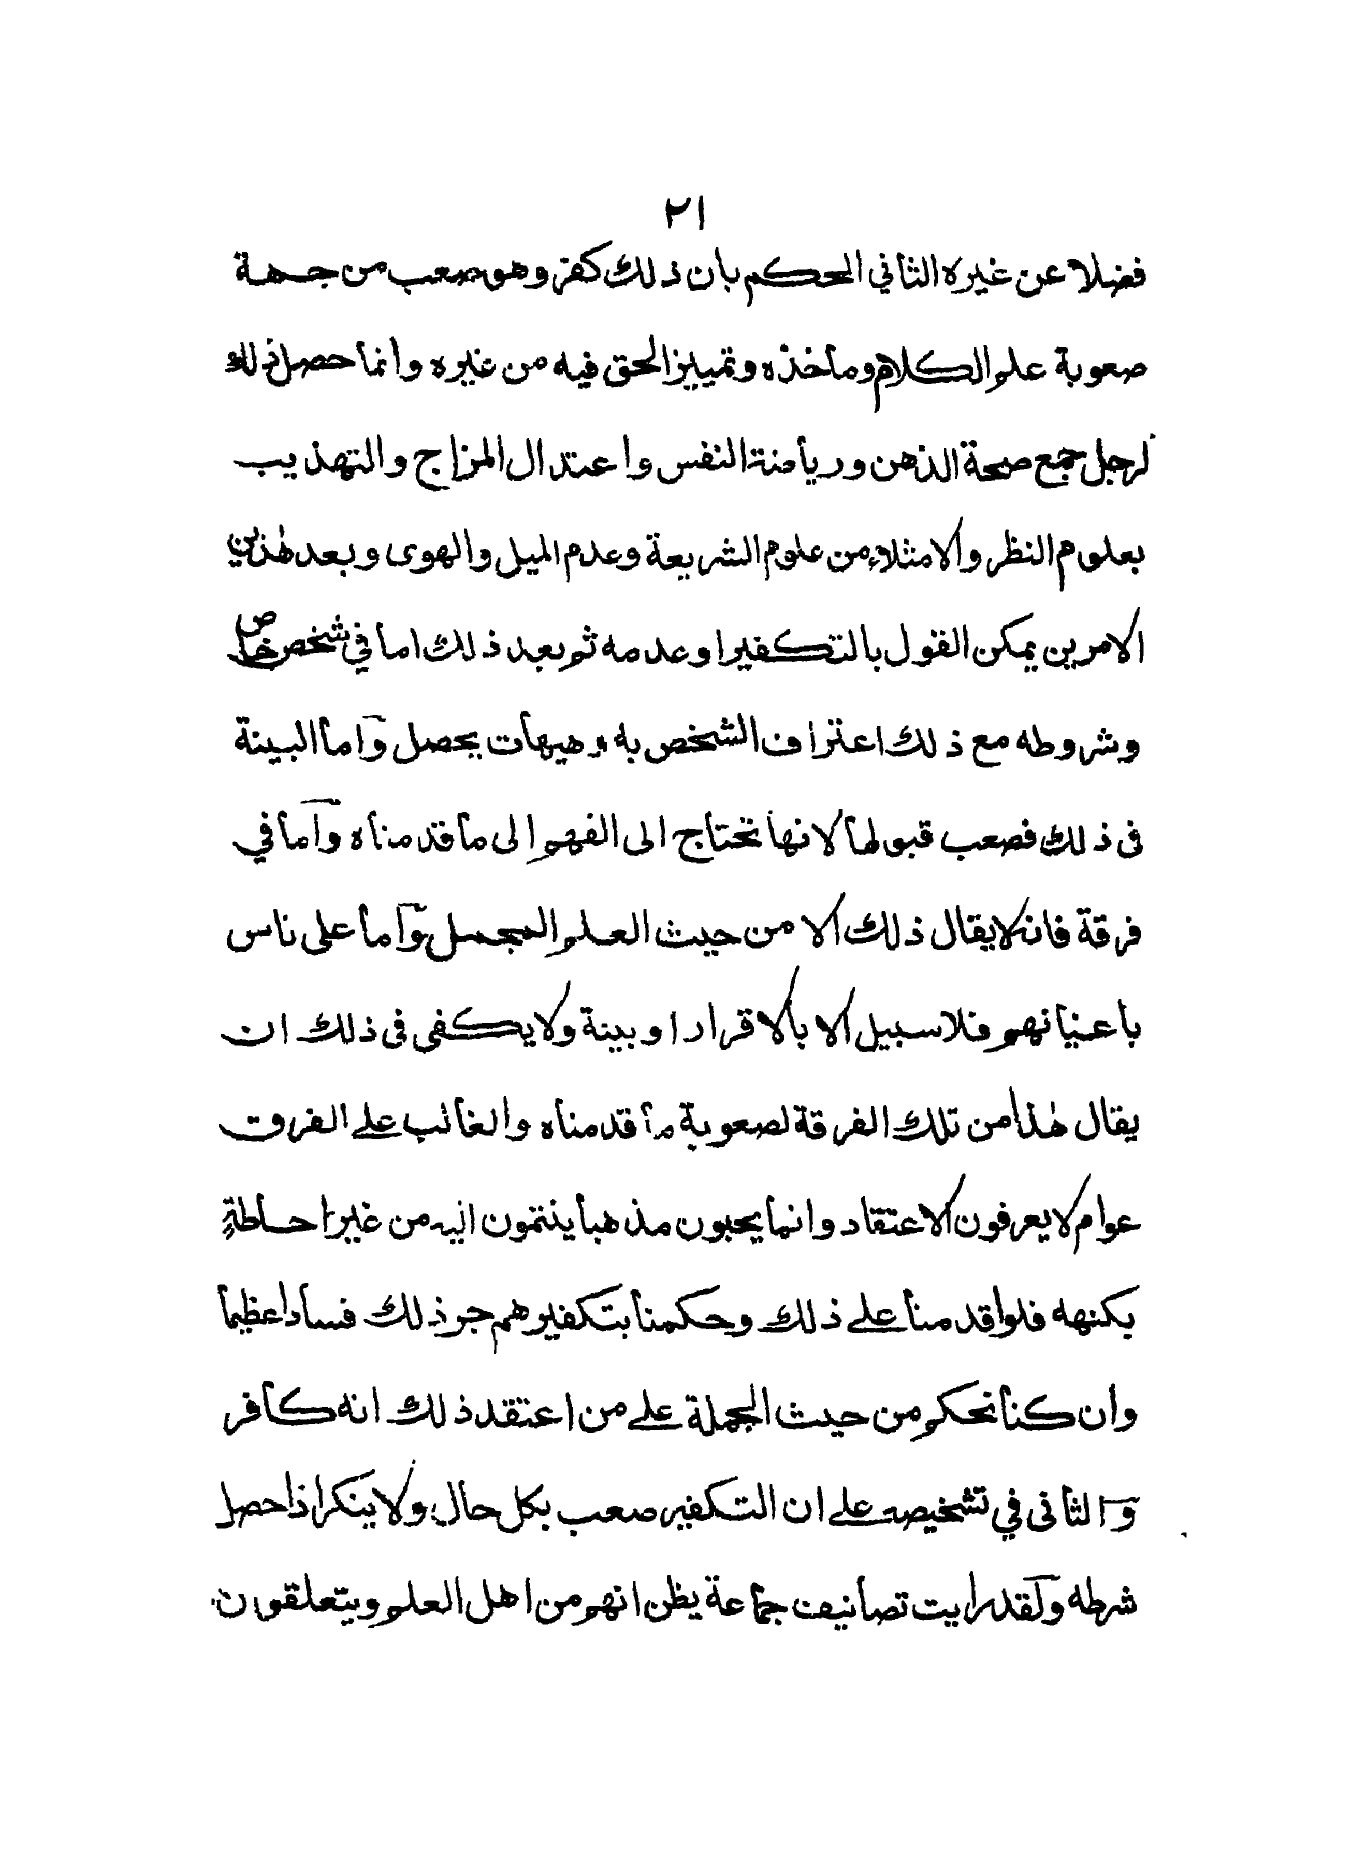 ٢١
فضلا عن غيره الثاني الحكم بان ذلك كفر وهو صعب من جهة
صعوبة علم الكلام ومأخذه وتمييز الحق فيه من غيره وانما حصل ذلك
لرجل جمع صحة الذهن ورياضة النفس واعتدال المزاج والتهذيب
بعلوم النظر والامتلاء من علوم الشريعة وعدم الميل والهوى وبعد هٰذين
الامرين يمكن القول بالتكفير او عدمه ثم بعد ذلك اما في شخص خاص
وشروطه مع ذلك اعتراف الشخص به وهيهات يحصل واما البينة
فى ذلك فصعب قبولها لانها تحتاج الى الفهم الى ما قدمناه واما في
فرقة فانه لا يقال ذلك الا من حيث العلم المجمل واما على ناس
باعيانهم فلا سبيل الا بالاقرار او بينة ولا يكفى فى ذلك ان
يقال هٰذا من تلك الفرقة لصعوبة ما قدمناه والغالب على الفرق
عوام لا يعرفون الاعتقاد وانما يحبون مذهبا ينتمون اليه من غير احاطةٍ
بكنهه فلو اقدمنا على ذلك وحكمنا بتكفيرهم جر ذلك فسادا عظيما
وان كنا نحكم من حيث الجملة على من اعتقد ذلك انه كافر
والثانى في تشخيصه على ان التكفير صعب بكل حال ولا ينكر اذا حصل
شرطه ولقد رايت تصانيف جماعة يظن انهم من اهل العلم ويتعلقون